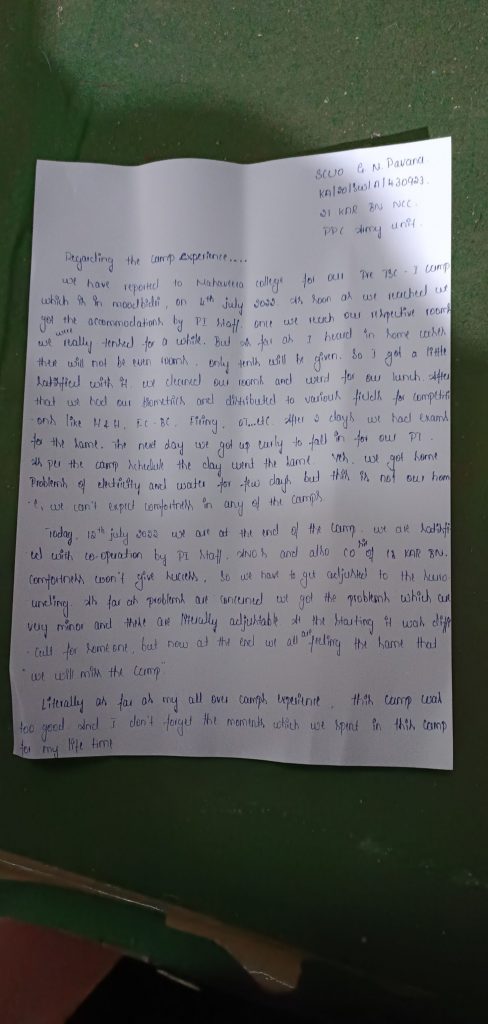 SCUO G N. Pavana.
KA/20/SW/A/430923.
21 KAR BN NCC.
PPC Army unit.
Regarding the camp Experience....
we have reported to Mahaveera college for our Pre TSC - I camp
which is in moodbidri, on 4th july 2022. As soon as we reached we
got the accommodations by PI staff. once we reach our respective rooms
we were really tensed for a while. But as far as I heard in some cases
there will not be even rooms, only tents will be given. So I got a little
satisfied with it. we cleaned our rooms and went for our lunch. After
that we had our biometrics and distributed to various fields for competiti
-ons like FC-BC, Firing, After 2 days we had exams
for the same. The next day we got up early to fall in for our PT.
As per the camp schedule the day went the same. Yes, we got some
problems of electricity and water for few days but this is not our hom
-e, we can't expect comfortness in any of the camps.
Today, 12th july 2022 we are at the end of the camp. we are satisfi
ed with co-operation by PI staff, ANOs and also CO of 18 KAR BN.
Comfortness won't give success, so we have to get adjusted to the surro
-unding. As far as problems are concerned we got the problems which are
very minor and these are literally adjustable. At the starting it was diffi
-cult for someone, but now at the end we all are feeling the same that
"we will miss the camp"
Literally as far as my all over camps experience, this camp was
too good. And I don't forget the moments which we spent in this camp
for my life time